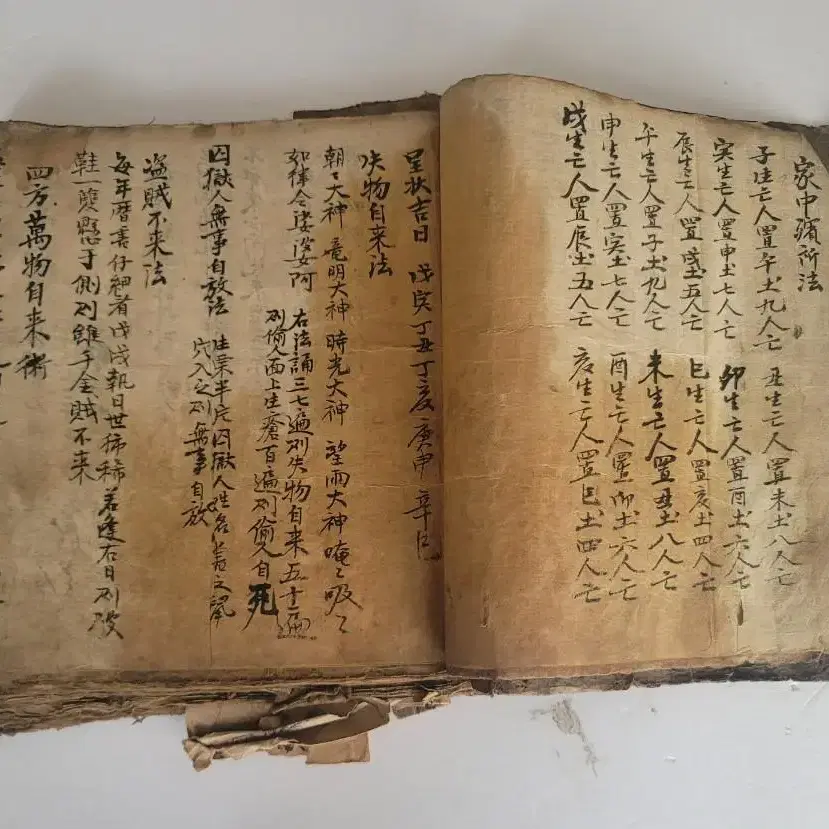 家中殯所法
子生亡人置午土九人亡 丑生亡人置未土八人亡
寅生亡人置申土七人亡 卯生亡人置酉土六人亡
辰生亡人置戌土五人亡 巳生亡人置亥土四人亡
午生亡人置子土九人亡 未生亡人置丑土八人亡
申生亡人置寅土七人亡 酉生亡人置卯土六人亡
戌生亡人置辰土五人亡 亥生亡人置巳土四人亡
呈狀吉日 戊寅丁丑丁亥庚申辛巳
失物自来法
朝々大神 竜明大神 時光大神 望雨大神 唵々吸々
如律令娑婆阿
右法誦三七遍則失物自来五十一遍
則偷人面上生瘡百遍則偷人自死
囚獄人無事自放法
生栗半定囚獄人姓名書之鼠
穴入之則無事自放
盜賊不来法
每年曆書仔細看戊戌執日世稀稀若逢右日則破
鞋一隻懸于側則雖千金賊不来
四方萬物自来術